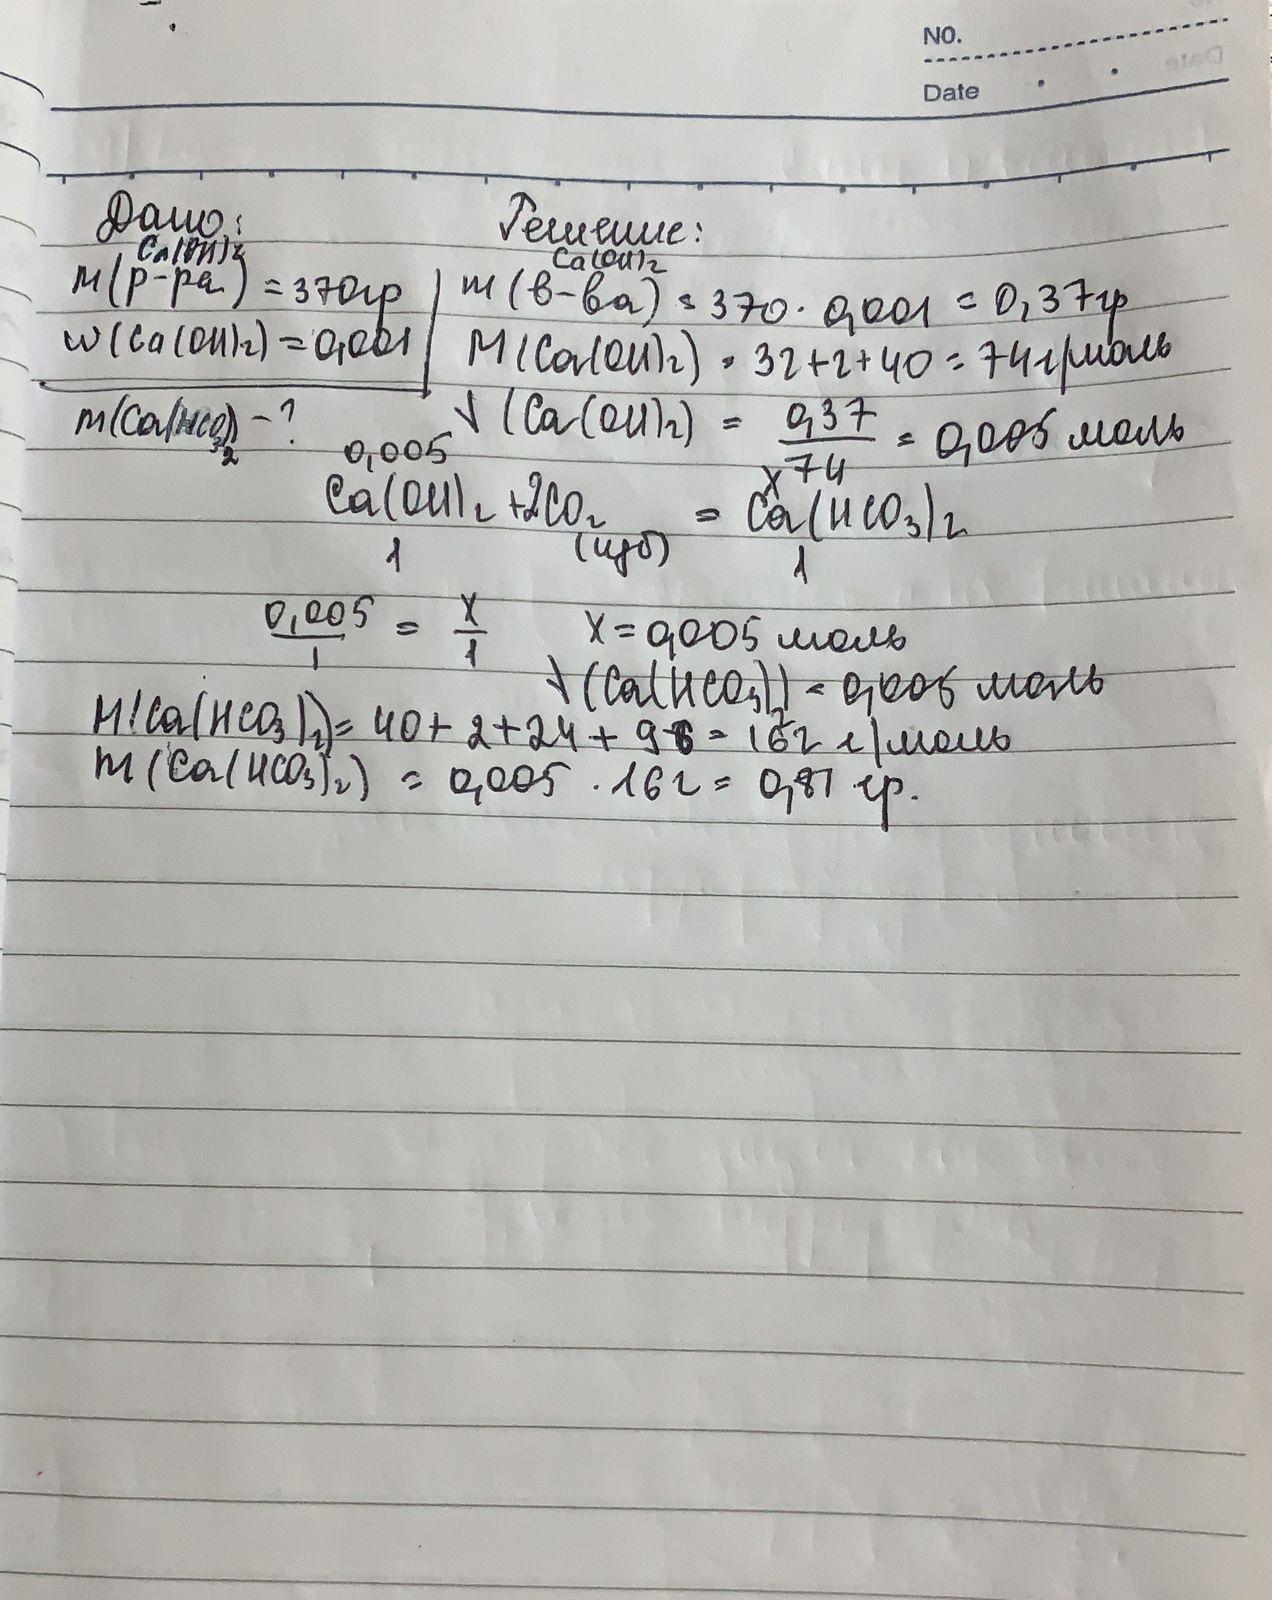 NO.
Date
Дано:
Ca(OH)2
m(р-ра) = 370гр
w(Ca(OH)2) = 0,001
m(Ca(HCO3)2 - ?
Решение:
Ca(OH)2
m(в-ва) = 370 · 0,001 = 0,37гр
M(Ca(OH)2) = 32+2+40 = 74 г/моль
ν(Ca(OH)2) = 0,37/74 = 0,005 моль
0,005 x
Ca(OH)2 + 2CO2 = Ca(HCO3)2
1 (изб) 1
0,005/1 = x/1 x = 0,005 моль
ν(Ca(HCO3)2) = 0,005 моль
M(Ca(HCO3)2) = 40+2+24+96 = 162 г/моль
m(Ca(HCO3)2) = 0,005 · 162 = 0,81 гр.